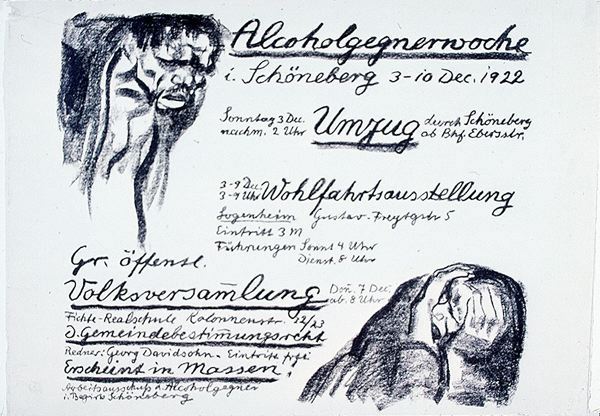 Alcoholgegnerwoche
i. Schöneberg 3-10 Dec. 1922
Sonntag 3 Dec. nachm. 2 Uhr Umzug durch Schöneberg ab Bhf. Ebersstr.
3-9 Dec.
3-9 Uhr Wohlfahrtsausstellung
Logenheim Gustav-Freytagstr 5
Eintritt 3 M
Führungen Sonnt 4 Uhr
Dienst. 8 Uhr
Gr. öffentl.
Volksversam̄lung Don. 7 Dec. ab. 8 Uhr
Fichte-Realschule Kolonnenstr. 22/23
D. Gemeindebestim̄ungsrecht
Redner: Georg Davidsohn - Eintritt frei
Erscheint in Massen!
Arbeitsausschuß d. Alcoholgegner
i. Bezirk Schöneberg